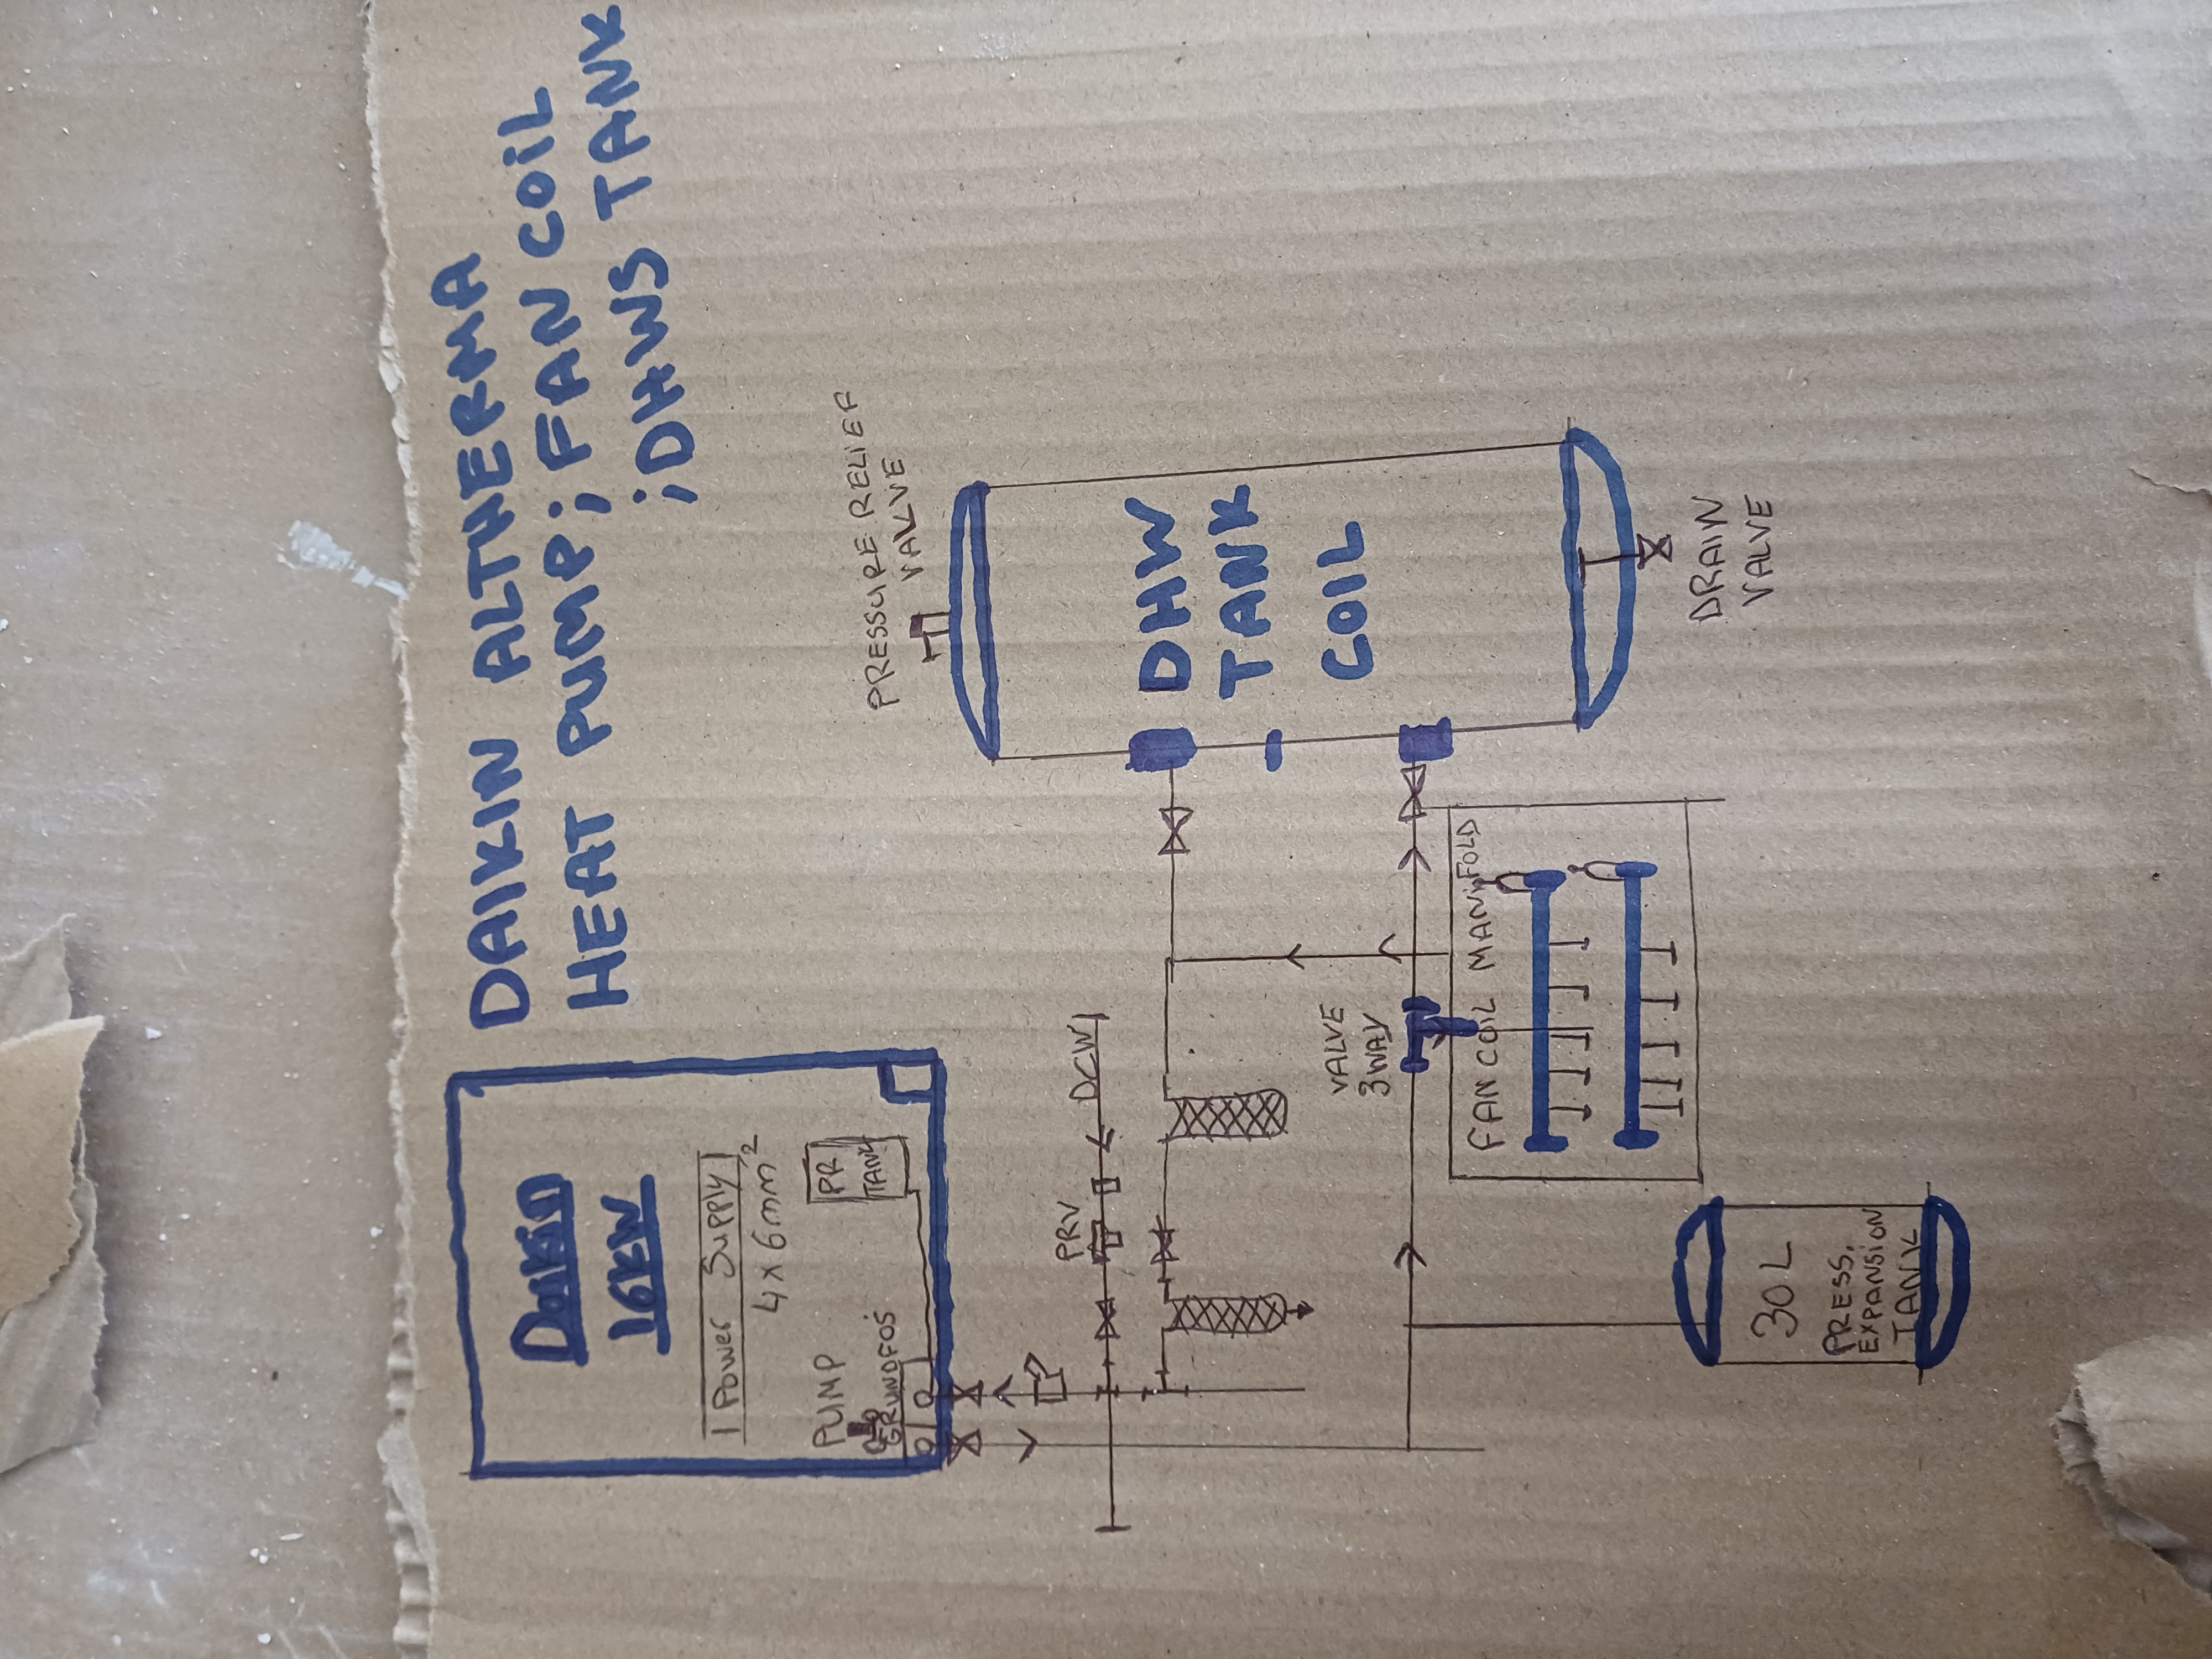 DAIKIN ALTHERMA
HEAT PUMP; FAN COIL
; DHWS TANK
DAIKIN
16KW
Power Supply
4 x 6mm²
PUMP
GRUNDFOS
PR
TANK
PRV
DCW
PRESSURE RELIEF
VALVE
DHW
TANK
COIL
DRAIN
VALVE
VALVE
3WAY
FAN COIL MANIFOLD
30L
PRESS.
EXPANSION
TANK